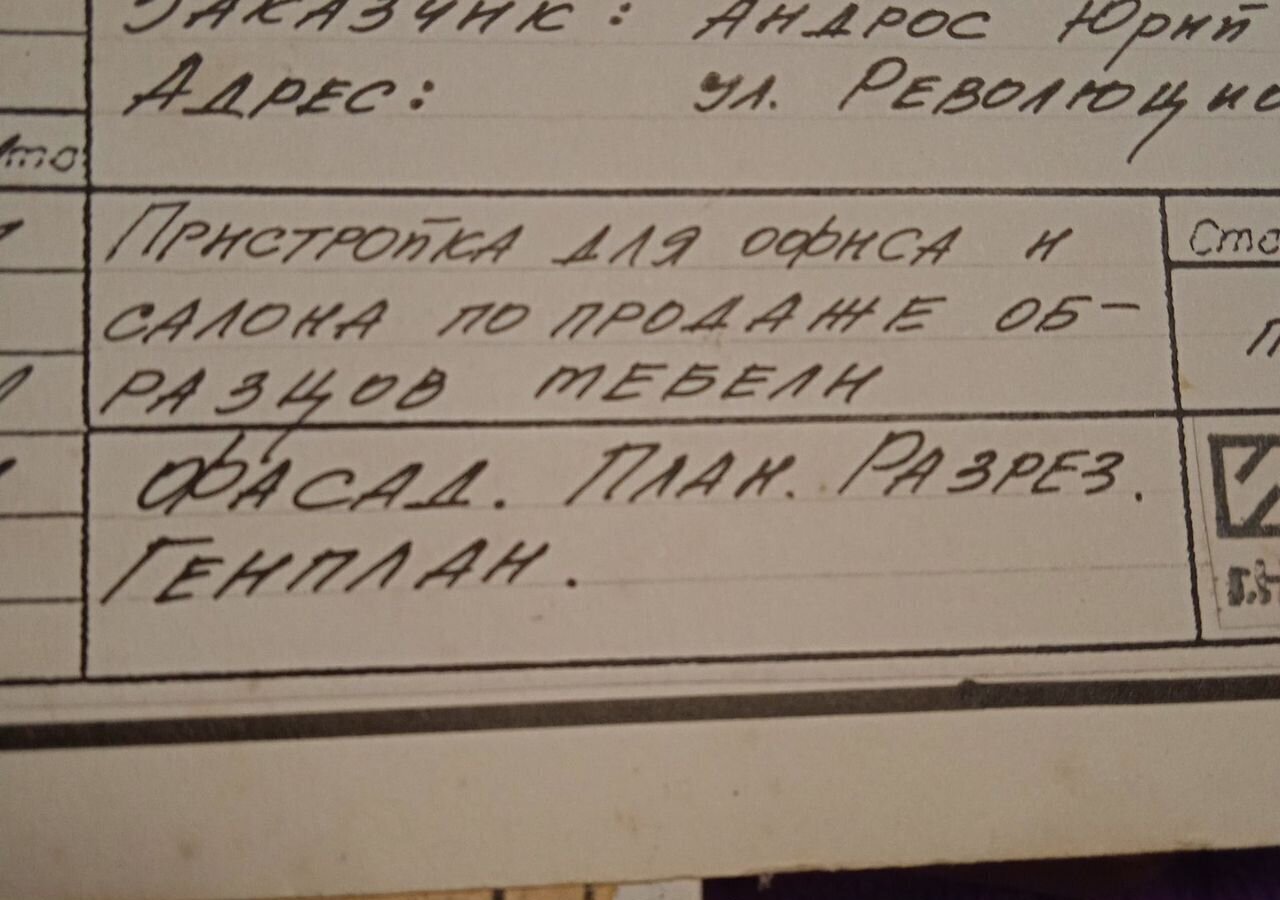 Заказчик: Андрос Юрий
Адрес: ул. Революцио
Пристройка для офиса и
салона по продаже об-
разцов мебели
Фасад. План. Разрез.
Генплан.